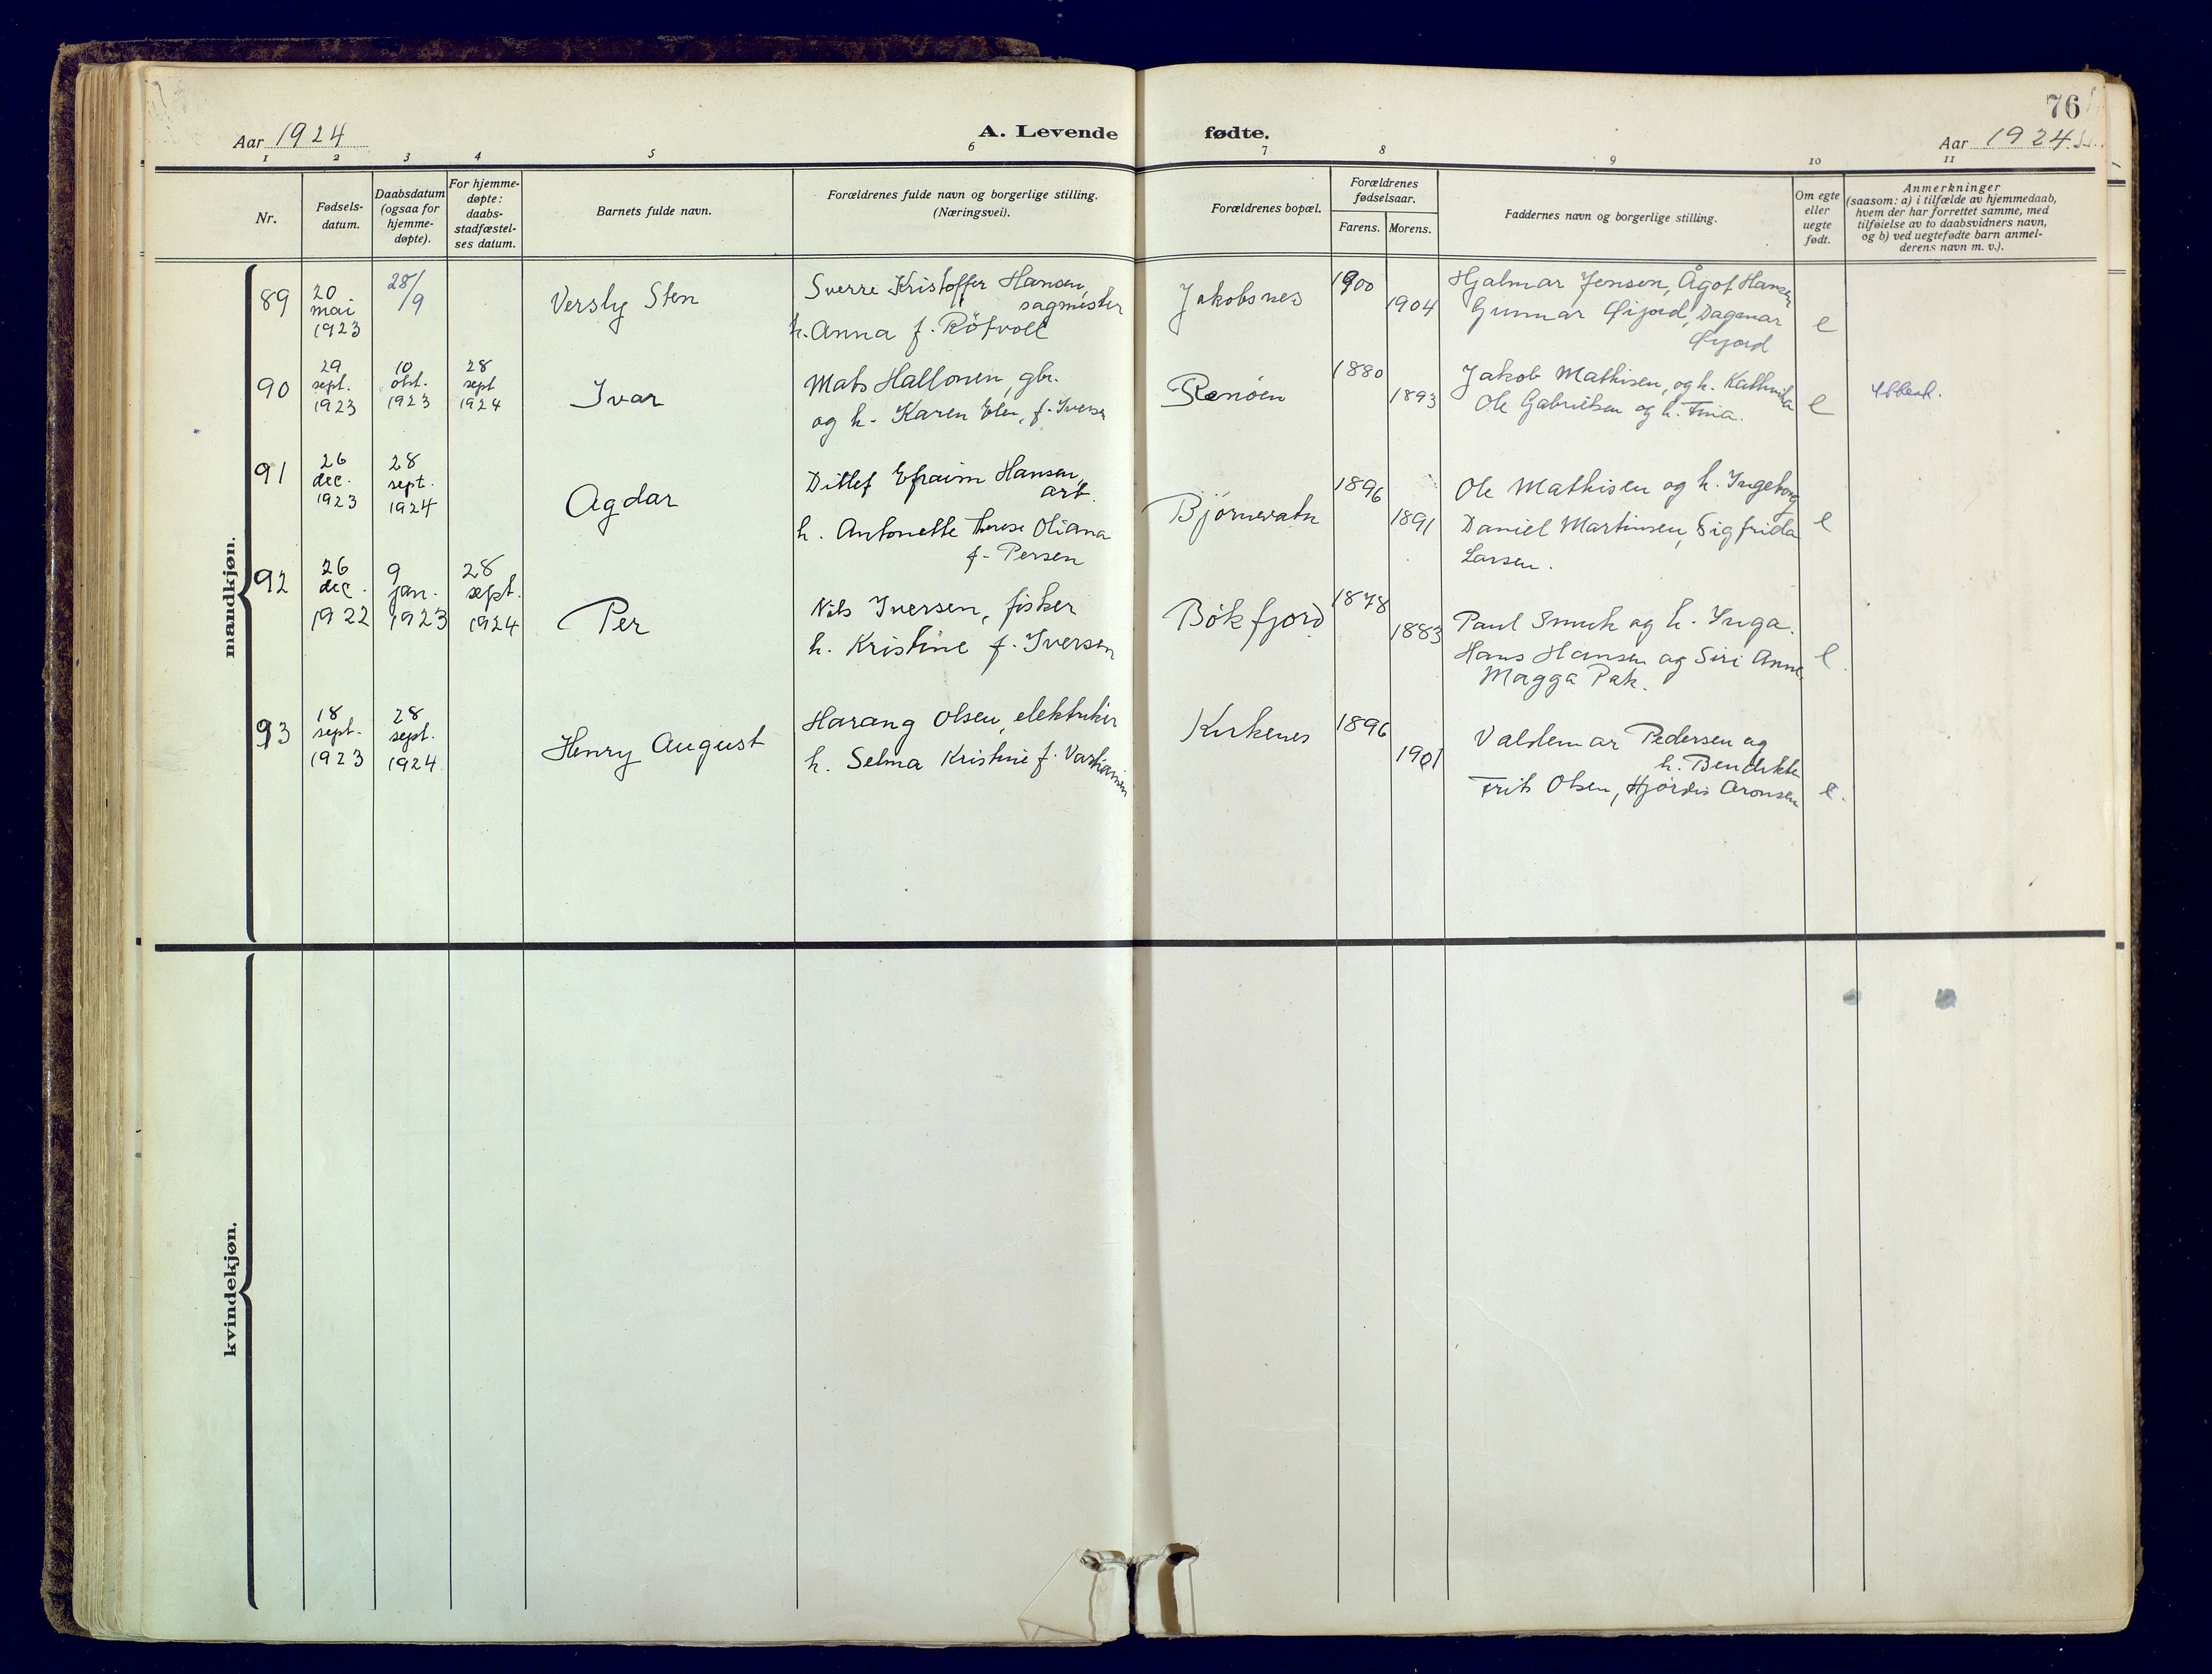 76
Aar 1924
A. Levende fødte.
Aar 1924.
1 2 3 4 5 6 7 8 9 10 11
Nr.
Fødsels-
datum.
Daabsdatum
(ogsaa for
hjemme-
døpte).
For hjemme-
døpte:
daabs-
stadfæstel-
ses datum.
Barnets fulde navn.
Forældrenes fulde navn og borgerlige stilling.
(Næringsvei).
Forældrenes bopæl.
Forældrenes
fødselsaar.
Farens. Morens.
Faddernes navn og borgerlige stilling.
Om egte
eller
uegte
født.
Anmerkninger
(saasom: a) i tilfælde av hjemmedaab,
hvem der har forrettet samme, med
tilføielse av to daabsvidners navn,
og b) ved uegtefødte barn anmel-
derens navn m. v.).
mandkjøn.
89
20
mai
1923
28/9
Versly Sten
Sverre Kristoffer Hansen,
sagmester
h. Anna f. Röfvoll
Jakobsnes
1900
1904
Hjalmar Jensen, Ågot Hansen
Gunnar Øijord, Dagmar
Øijord
e
90
29
sept.
1923
10
okt.
1923
28
sept
1924
Ivar
Mats Hallonen, gbr.
og h. Karen Elen, f. Iversen
Renöen
1880
1893
Jakob Mathisen, og h. Kathrika
Ole Gabrielsen og h. Tina.
e
91
26
dec.
1923
28
sept.
1924
Agdar
Ditlef Efraim Hansen,
arb.
h. Antonette Therese Oliana
f. Persen
Björnevatn
1896
1891
Ole Mathisen og h. Ingeborg
Daniel Martinsen, Sigfrida
Larsen.
e
92
26
dec.
1922
9
jan.
1923
28
sept.
1924
Per
Nils Iversen, fisker
h. Kristine f. Iversen
Bökfjord
1878
1883
Paul Smuk og h. Inga.
Hans Hansen og Siri Anne
Magga Pak.
e.
93
18
sept.
1923
28
sept.
1924
Henry August
Harang Olsen, elektriker
h. Selma Kristine f.
Kirkenes
1896
1901
Valdemar Pedersen og
h. Bendikte
Frits Olsen, Hjördis Aronsen
e.
kvindekjøn.